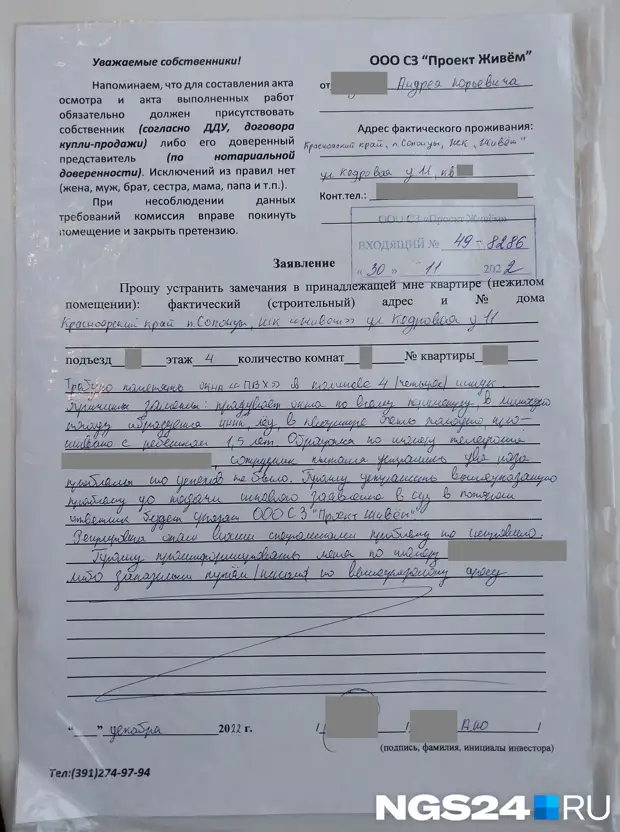 Уважаемые собственники!
Напоминаем, что для составления акта
осмотра и акта выполненных работ
обязательно должен присутствовать
собственник (согласно ДДУ, договора
купли-продажи) либо его доверенный
представитель (по нотариальной
доверенности). Исключений из правил нет
(жена, муж, брат, сестра, мама, папа и т.п.).
При несоблюдении данных
требований комиссия вправе покинуть
помещение и закрыть претензию.
ООО СЗ "Проект Живём"
от Андрея Юрьевича
Адрес фактического проживания:
Красноярский край, п. Солонцы, ЖК "Живём"
ул Кедровая у 11, кв
Конт.тел.:
ООО СЗ «Проект Живём»
ВХОДЯЩИЙ № 49-8286
« 30 » 11 2022
Заявление
Прошу устранить замечания в принадлежащей мне квартире (нежилом
помещении): фактический (строительный) адрес и № дома
Красноярский край п. Солонцы, ЖК «Живём» ул Кедровая у 11
подъезд этаж 4 количество комнат № квартиры
Требую поменять окна «ПВХ» в количестве 4 (четыре) штуки
Причины замены: продувает окна по всему периметру, в
образуется лёд, в
с ребёнком 1,5 лет. по номеру телефона
, сотрудник пытался устранить два раза
проблемы но успехов не было. Прошу устранить вышеуказанную
проблему до подачи искового заявления в суд в котором
ответчик будет ООО СЗ "Проект Живём"
Регулировка окон вашими специалистами проблему не исправила.
Прошу проинформировать меня по номеру
либо путём по вышеуказанному адресу
"___" декабря 2022 г. / / АЮ /
(подпись, фамилия, инициалы инвестора)
Тел:(391)274-97-94
NGS24 RU